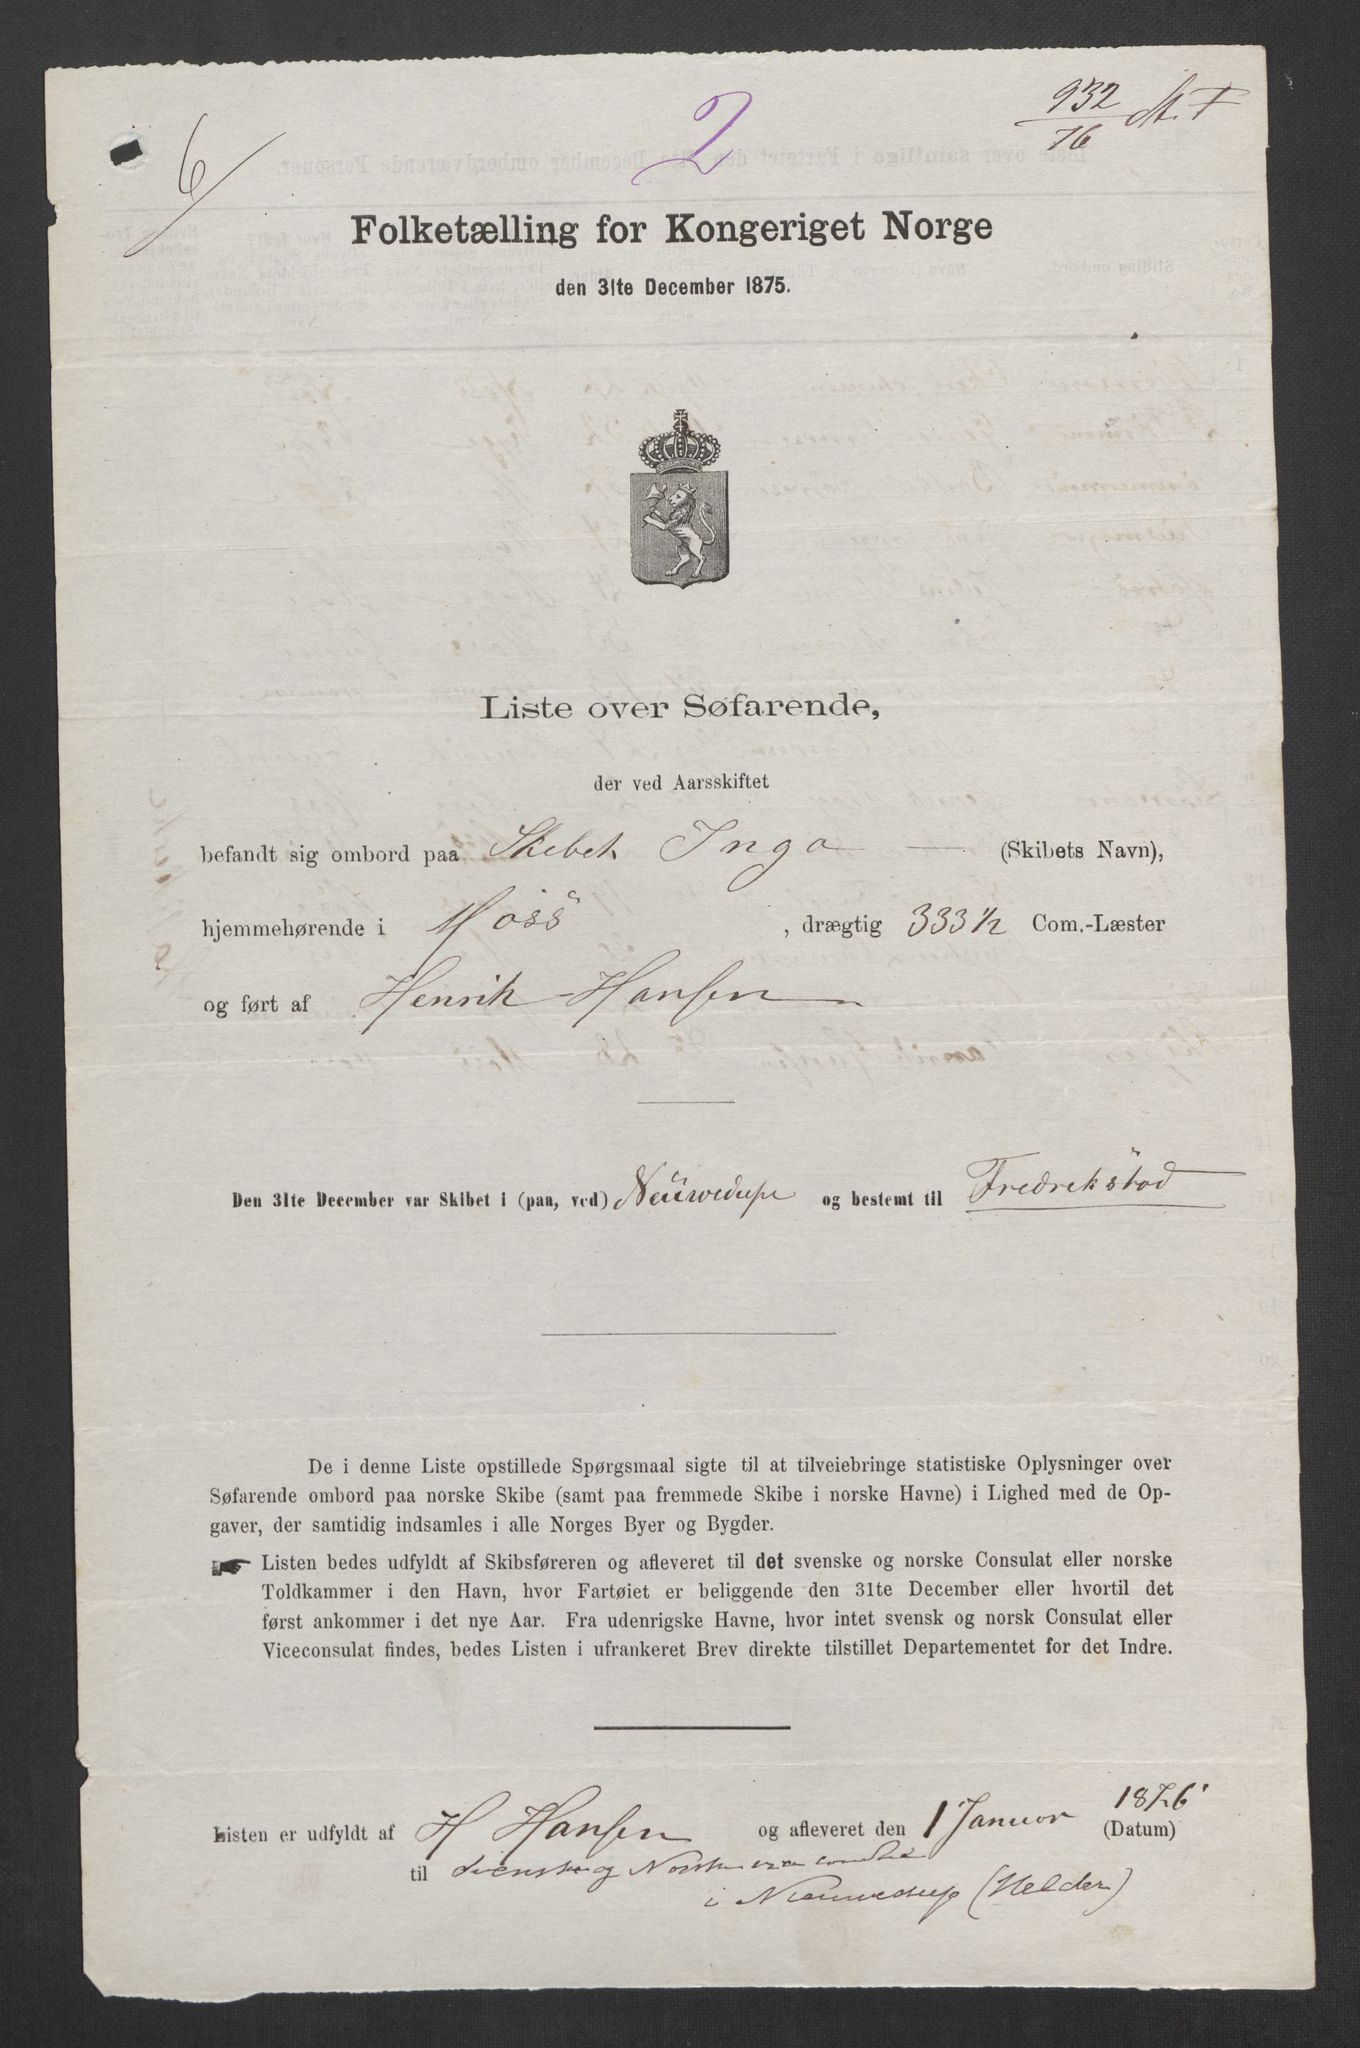 6
2
932
76
Folketælling for Kongeriget Norge
den 31te December 1875.
Liste over Søfarende,
der ved Aarsskiftet
befandt sig ombord paa Skibet Inga (Skibets Navn),
hjemmehørende i Moss, drægtig 333 1/2 Com.-Læster
og ført af Henrik Hansen
Den 31te December var Skibet i (paa, ved) Neüwediep og bestemt til Fredrikstad
De i denne Liste opstillede Spørgsmaal sigte til at tilveiebringe statistiske Oplysninger over
Søfarende ombord paa norske Skibe (samt paa fremmede Skibe i norske Havne) i Lighed med de Op-
gaver, der samtidig indsamles i alle Norges Byer og Bygder.
☛ Listen bedes udfyldt af Skibsføreren og afleveret til det svenske og norske Consulat eller norske
Toldkammer i den Havn, hvor Fartøiet er beliggende den 31te December eller hvortil det
først ankommer i det nye Aar. Fra udenrigske Havne, hvor intet svensk og norsk Consulat eller
Viceconsulat findes, bedes Listen i ufrankeret Brev direkte tilstillet Departementet for det Indre.
Listen er udfyldt af H Hansen og afleveret den 1 Januar 1876 (Datum)
til Svensk og Norsk
i Nieuwediep (Helder)